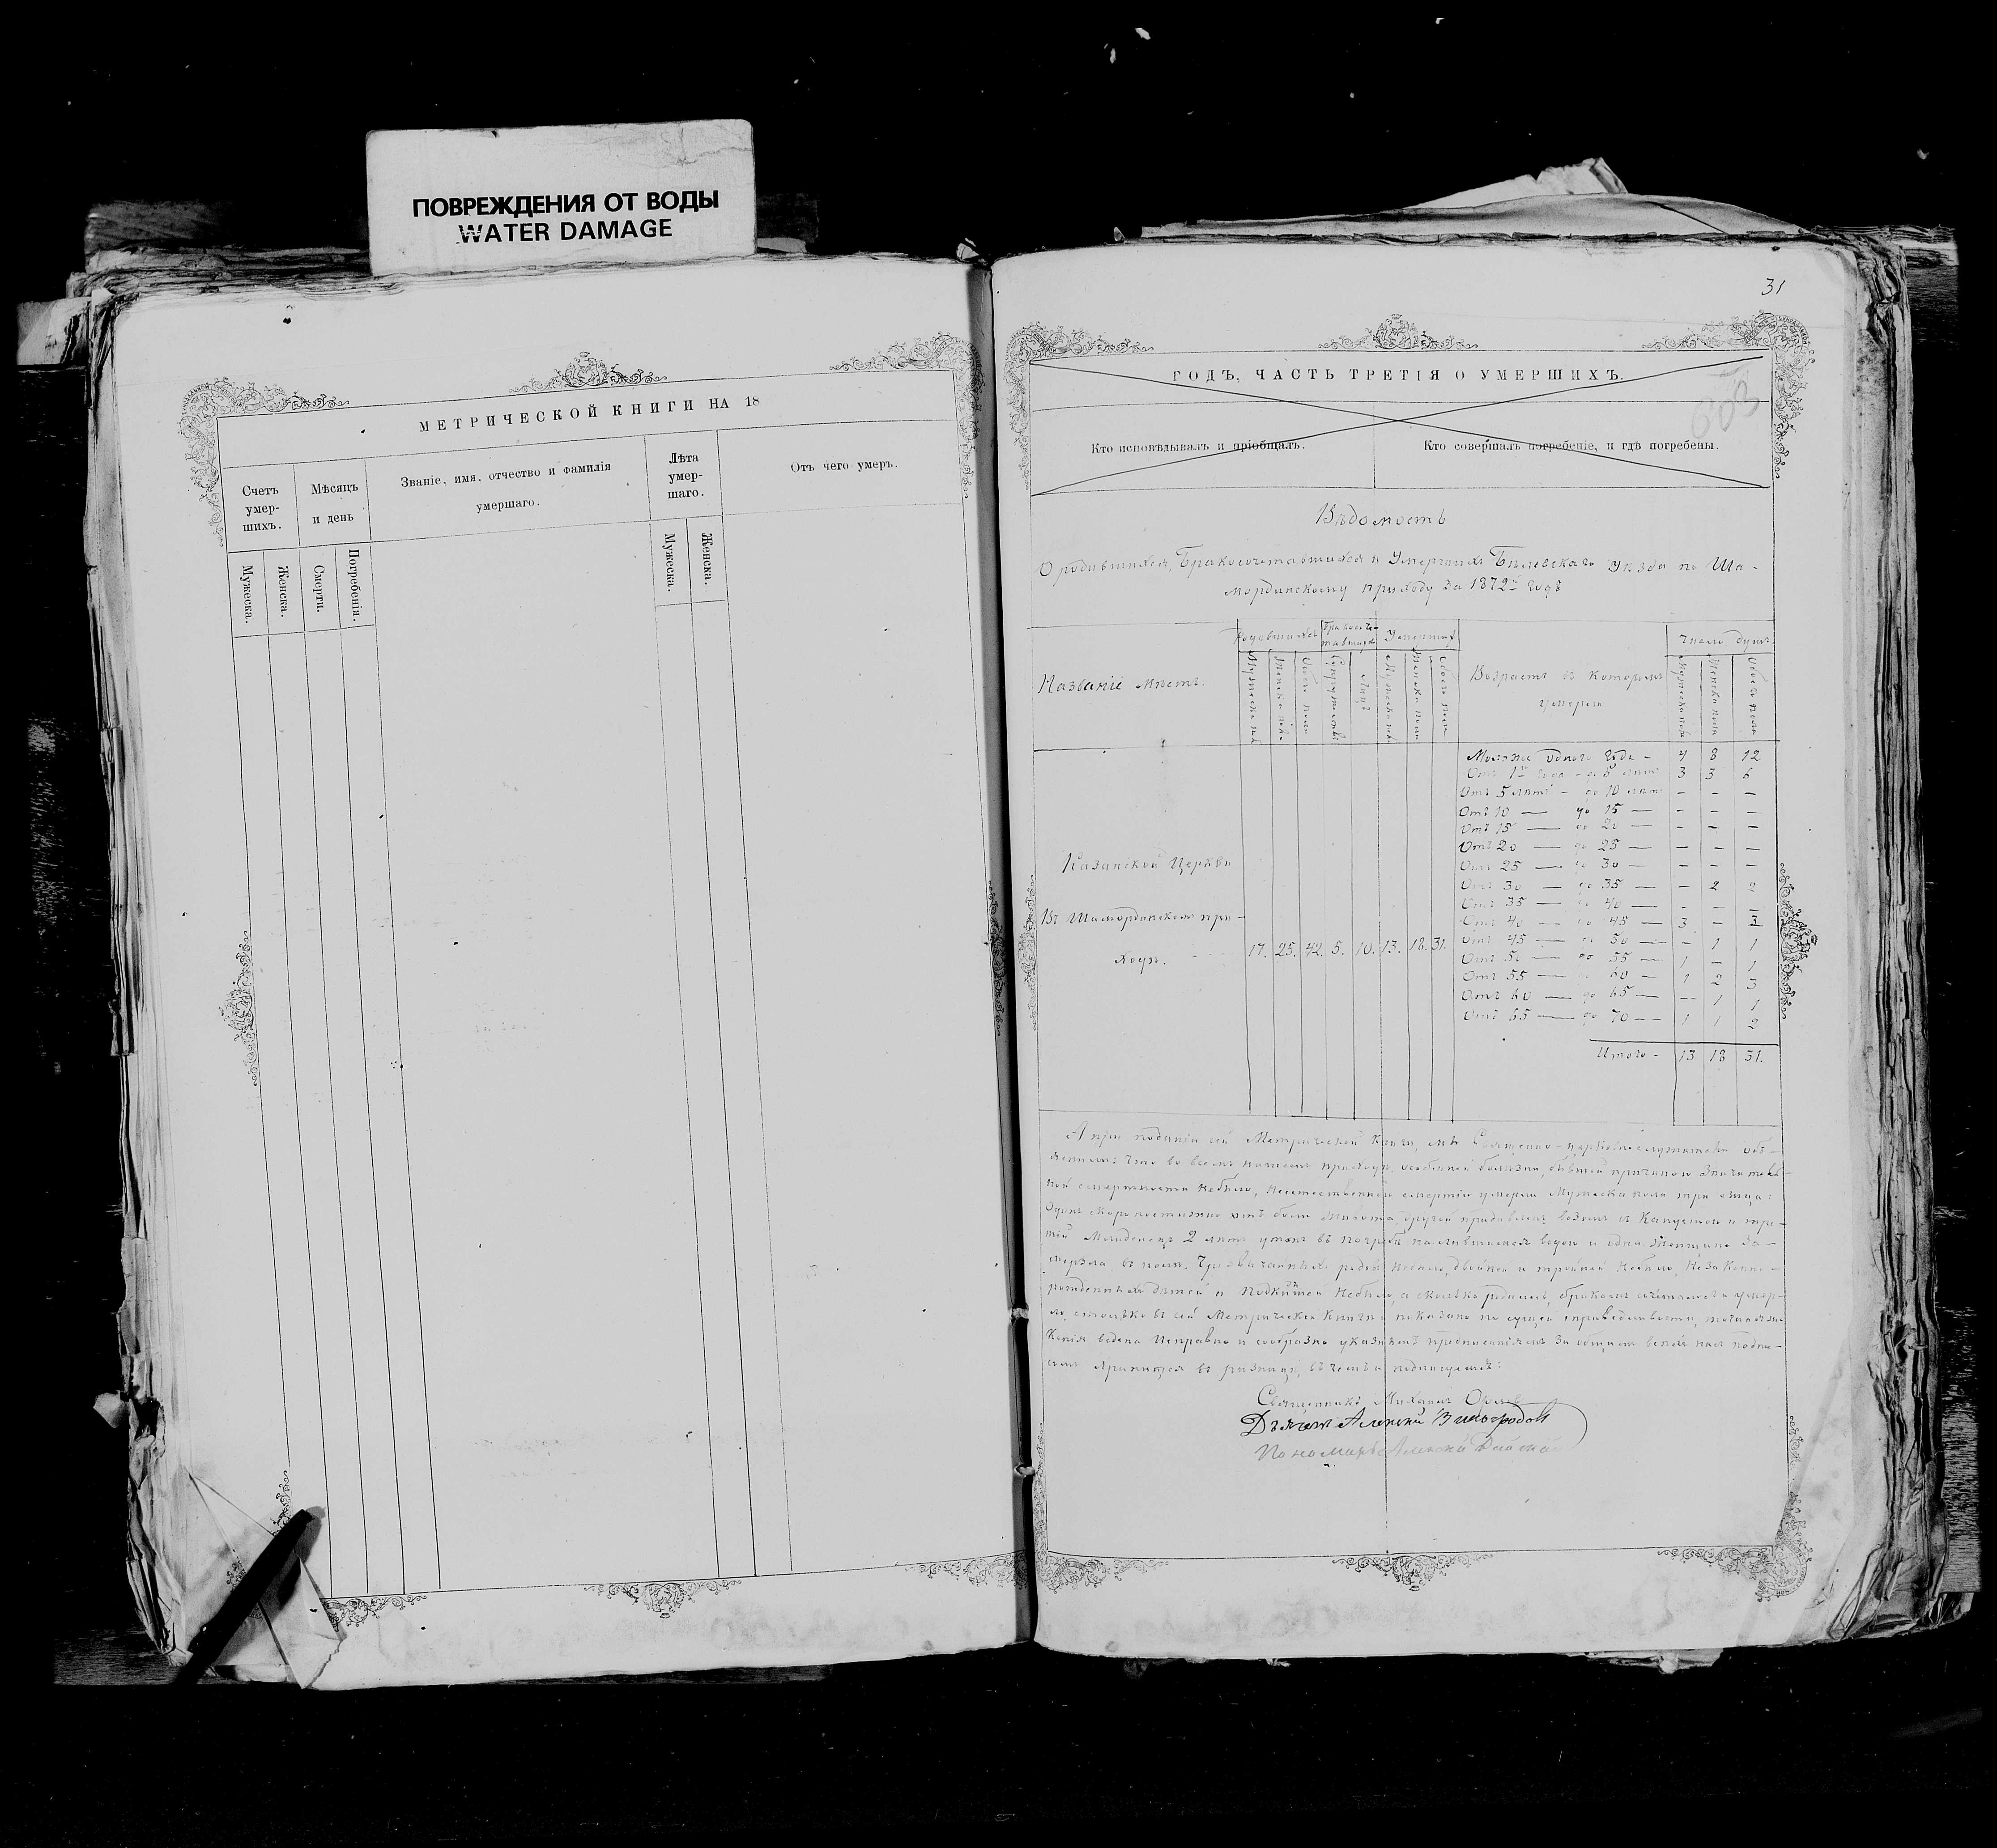 ПОВРЕЖДЕНИЯ ОТ ВОДЫ
WATER DAMAGE
МЕТРИЧЕСКОЙ КНИГИ НА 18
Счетъ умер-шихъ.
Мѣсяцъ и день
Званіе, имя, отчество и фамилія
умершаго.
Лѣта умер-шаго.
Отъ чего умеръ.
Мужеска.
Женска.
Смерти.
Погребенія.
Мужеска.
Женска.
31
ГОДЪ, ЧАСТЬ ТРЕТІЯ О УМЕРШИХЪ.
603
Кто исповѣдывалъ и пріобщалъ.
Кто совершалъ погребеніе, и гдѣ погребены.
Вѣдомость
О родившихся, Бракосочетавшихся и Умершихъ Бѣлевскаго Уѣзда по Ша-
мординскому приходу за 1872й годъ
Названіе мѣстъ.
Родившихся
Бракосоче-
тавшихся
Умершихъ
Возрастъ въ которомъ
умерли
Число душъ
Мужеска пола
Женска пола
Обоего пола
Супружествъ
Лицъ
Мужеска пола
Женска пола
Обоего пола
Мужеска пола
Женска пола
Обоего пола
Моложе одного года - 4 8 12
Отъ 1го года - до 5 лѣтъ 3 3 6
Отъ 5 лѣтъ - до 10 лѣтъ - - -
Отъ 10 — до 15 — - - -
Отъ 15 — до 20 — - - -
Отъ 20 — до 25 — - - -
Отъ 25 — до 30 — - - -
Отъ 30 — до 35 — - 2 2
Отъ 35 — до 40 — - - -
Отъ 40 — до 45 — 3 - 3
Отъ 45 — до 50 — - 1 1
Отъ 50 — до 55 — 1 - 1
Отъ 55 — до 60 — 1 2 3
Отъ 60 — до 65 — - 1 1
Отъ 65 — до 70 — 1 1 2
Казанской Церкви
Въ Шамординскомъ при-
ходѣ. 17. 25. 42. 5. 10. 13. 18. 31.
Итого - 13 18 31.
А при поданіи сей Метрической Книги, мы Священно-церковнослужители объ-
явили: что во всемъ нашемъ приходѣ, особенной болѣзни, бывшей причиною значитель-
ной смертности не было, неестественной смертію умерли Мужеска пола три лица:
Одинъ скоропостижно отъ боли живота, другой придавленъ возомъ съ Капустою и тре-
тій Младенецъ 2 лѣтъ утонъ въ погребѣ налившемся водою и одна женщина за-
мерзла въ полѣ. Чрезвычайныхъ родовъ не было, двойней и тройней не было, Незаконно-
рожденныхъ дѣтей и Подкидышей не было, а сколько родилось, бракомъ сочеталось и умер-
ло, столько въ сей Метрической Книгѣ и показано по сущей справедливости,
веденa Исправно и сообразно указнымъ предписаніямъ за общимъ всѣхъ насъ подпи-
сомъ хранится въ ризницѣ, въ чемъ и подписуемся:
Священникъ Михаилъ Орловъ
Дьячекъ Алексѣй Виноградовъ
Пономарь Алексѣй